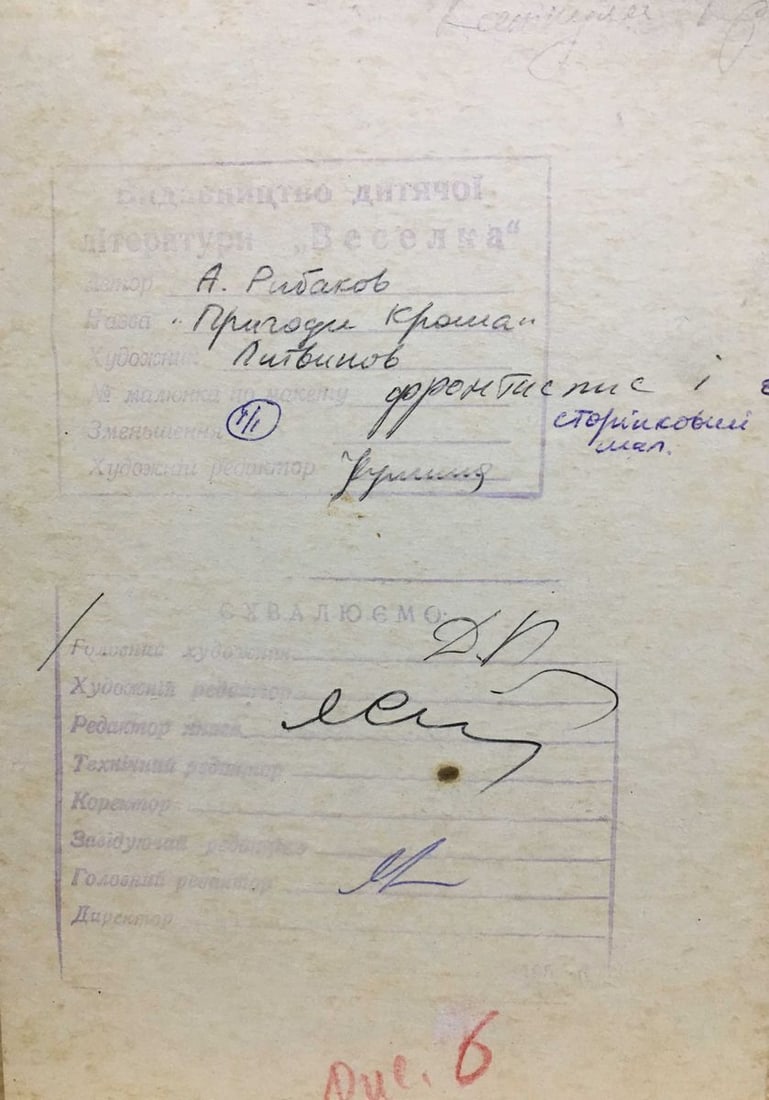 Видавництво дитячої
літератури „Веселка“
Автор А. Рибаков
Назва „Пригоди Кроша“
Художник Литвинов
№ малюнка по макету фронтиспис і
сторінковий
мал.
Зменьшення 1/1
Художній редактор
СХВАЛЮЄМО:
Головний художник
Художній редактор
Редактор книги
Технічний редактор
Коректор
Завідуючий редакцією
Головний редактор
Директор
Рис. 6